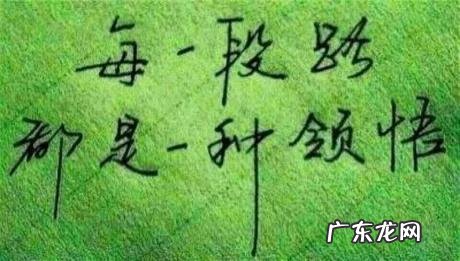 每一段路
都是一种领悟
广东龙网